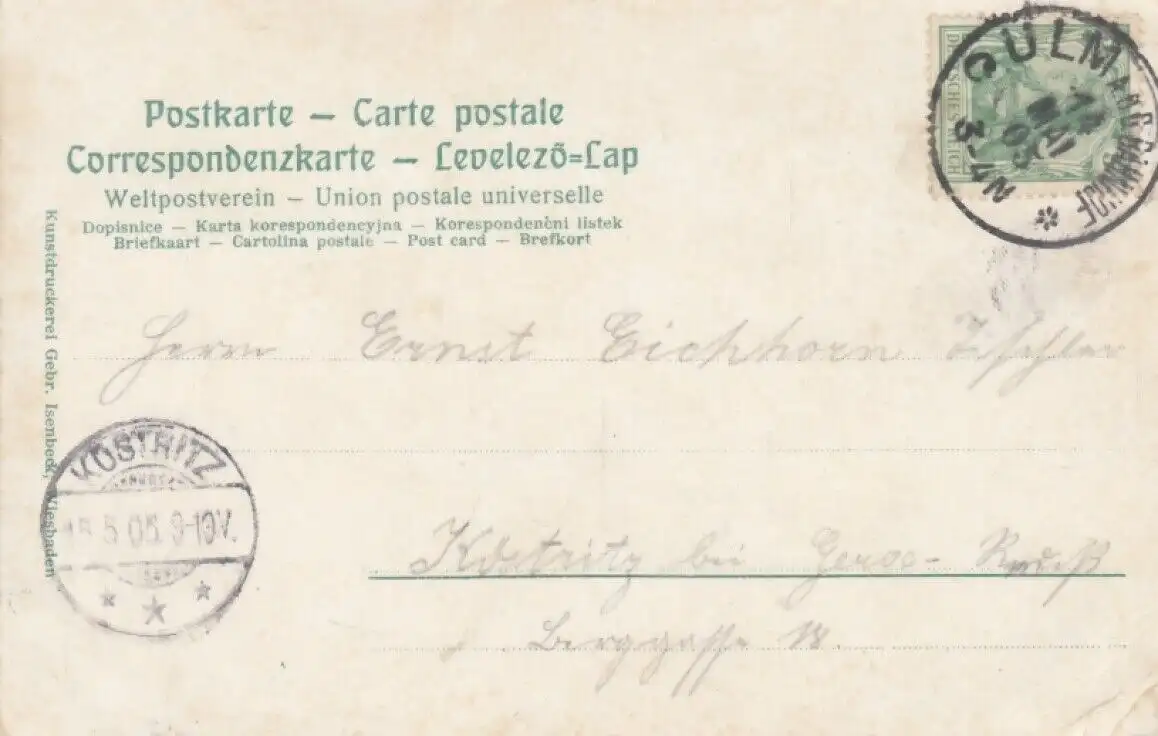 Postkarte — Carte postale
Correspondenzkarte — Levelező=Lap
Weltpostverein — Union postale universelle
Dopisnice — Karta korespondencyjna — Korespondenční listek
Briefkaart — Cartolina postale — Post card — Brefkort
DEUTSCHES REICH
CULM
MAI
05
3-4N
Kunstdruckerei Gebr. Isenbeck, Wiesbaden
Herrn Ernst Eichhorn Tischler
KÖSTRITZ
15.5.05. 9-10V.
Köstritz bei Gera- Reuß
Berggasse